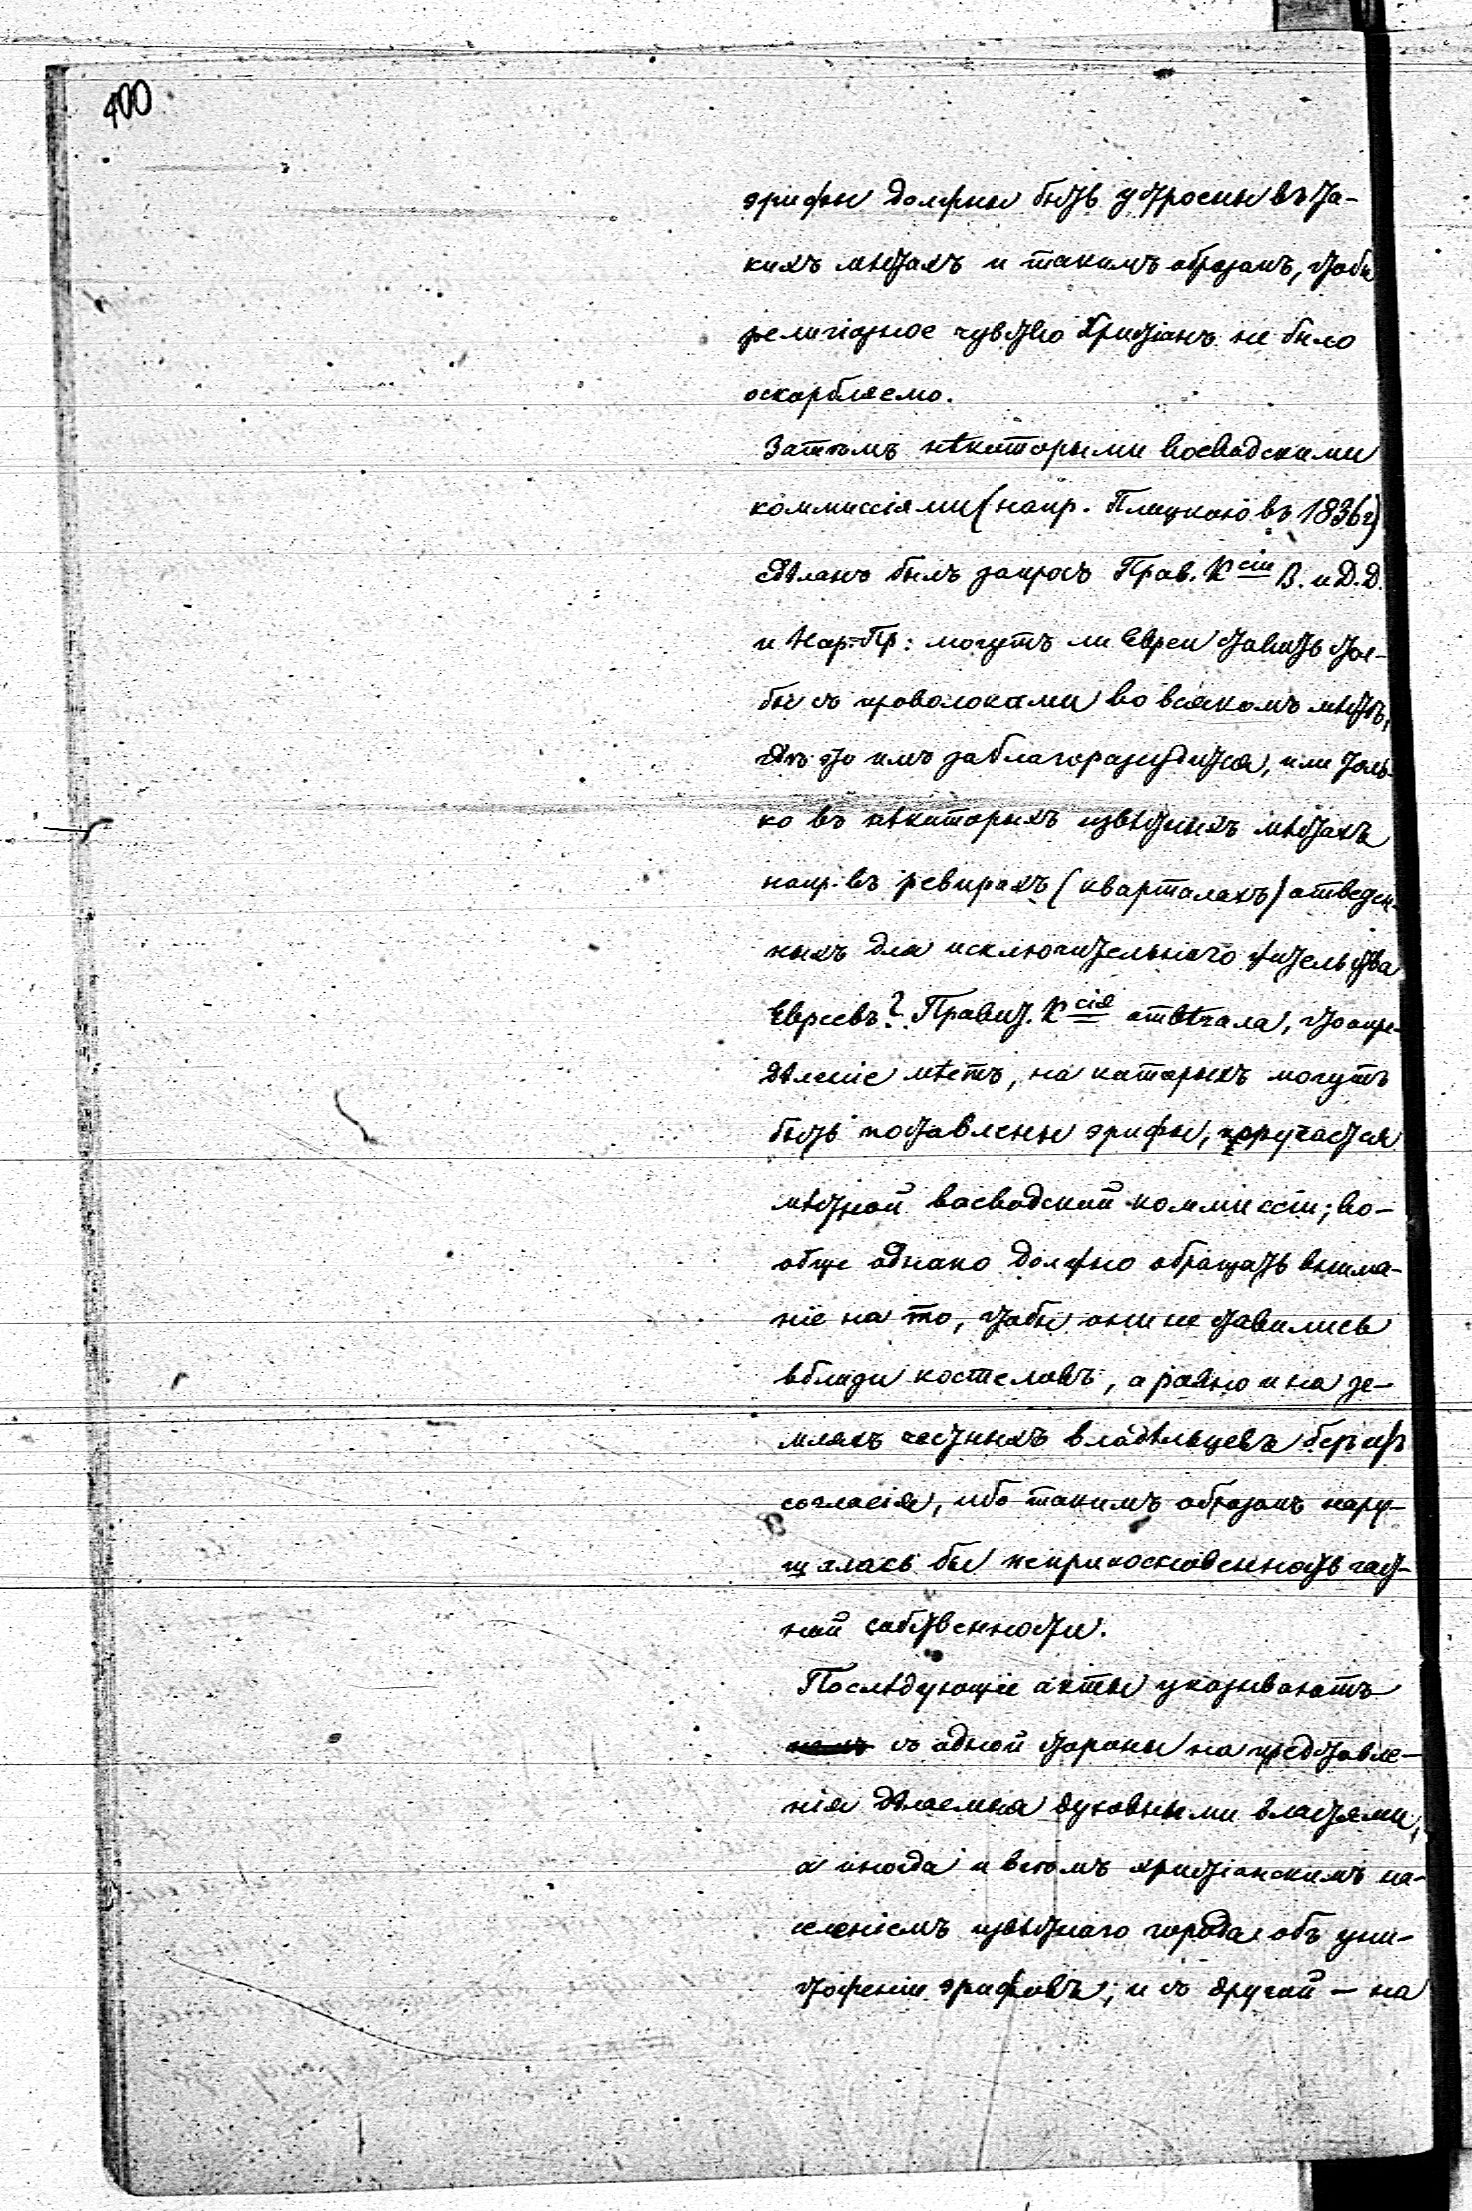 400
эрифы должны быть устроены въ та-
кихъ мѣстахъ и такимъ образомъ, чтобы
религіозное чувство Христіанъ не было
оскорбляемо.
Затѣмъ нѣкоторыми воеводскими
коммиссіями (напр. Плоцкою въ 1836 г)
сдѣланъ былъ запросъ Прав. Ксіи В. и Д. Д.
и Нар. Пр: могутъ ли Евреи ставить стол-
бы съ проволоками во всякомъ мѣстѣ,
гдѣ это имъ заблагоразсудится, или толь-
ко въ нѣкоторыхъ извѣстныхъ мѣстахъ
напр. въ ревирахъ (кварталахъ) отведен-
ныхъ для исключительнаго жительства
Евреевъ? Правит. Ксія отвѣчала, что опре-
дѣленіе мѣстъ, на которыхъ могутъ
быть поставлены эрифы, поручается
мѣстной воеводской коммиссіи; во-
обще однако должно обращать внима-
ніе на то, чтобы они не ставились
вблизи костеловъ, а равно и на зе-
мляхъ частныхъ владѣльцевъ безъ ихъ
согласія, ибо такимъ образомъ нару-
шалась бы неприкосновенность част-
ной собственности.
Послѣдующіе акты указываютъ
съ одной стороны на представле-
нія дѣлаемыя духовными властями,
а иногда и всѣмъ христіанскимъ на-
селеніемъ извѣстнаго города объ уни-
чтоженіи эрифовъ; и съ другой — на